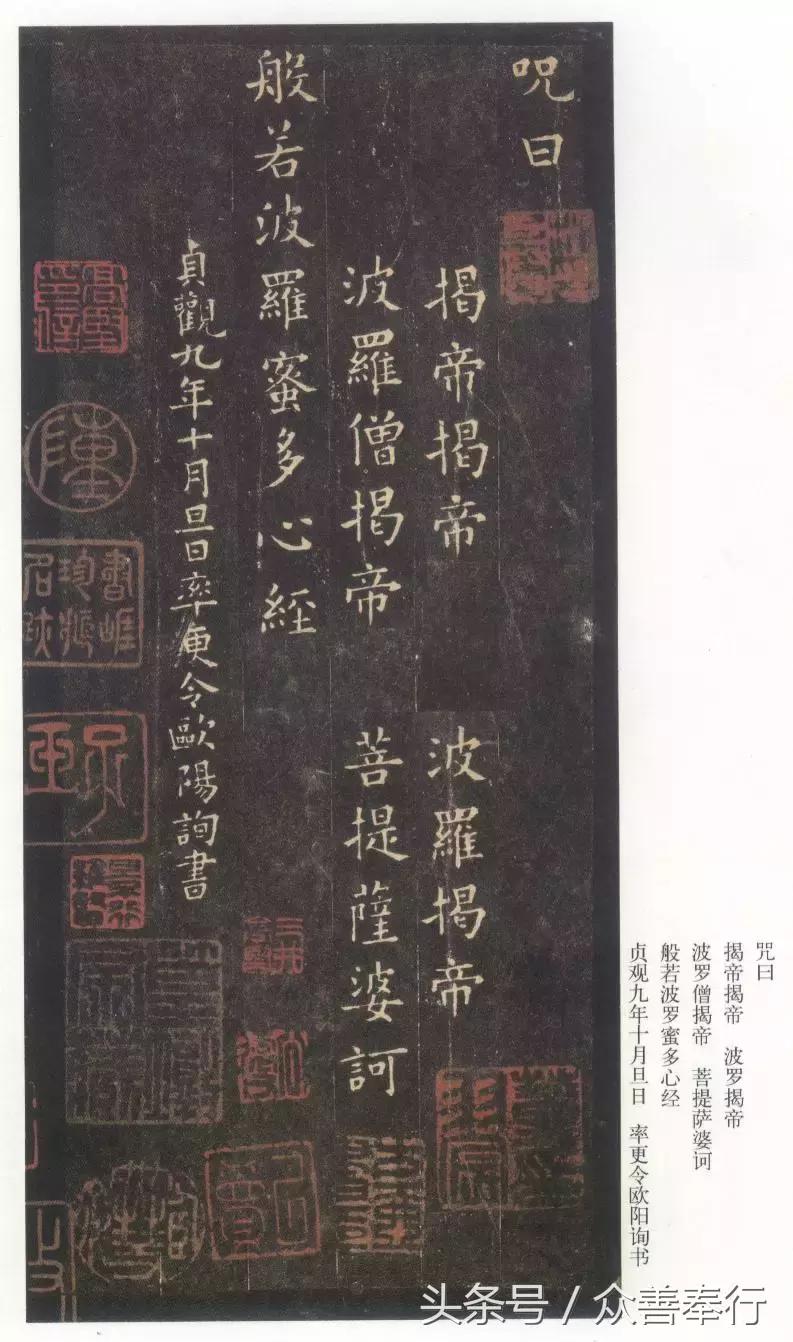 咒曰
揭帝揭帝 波羅揭帝
波羅僧揭帝 菩提薩婆訶
般若波羅蜜多心經
貞觀九年十月旦日率更令歐陽詢書
咒曰
揭帝揭帝 波罗揭帝
波罗僧揭帝 菩提萨婆诃
般若波罗蜜多心经
贞观九年十月旦日 率更令欧阳询书
头条号 / 众善奉行